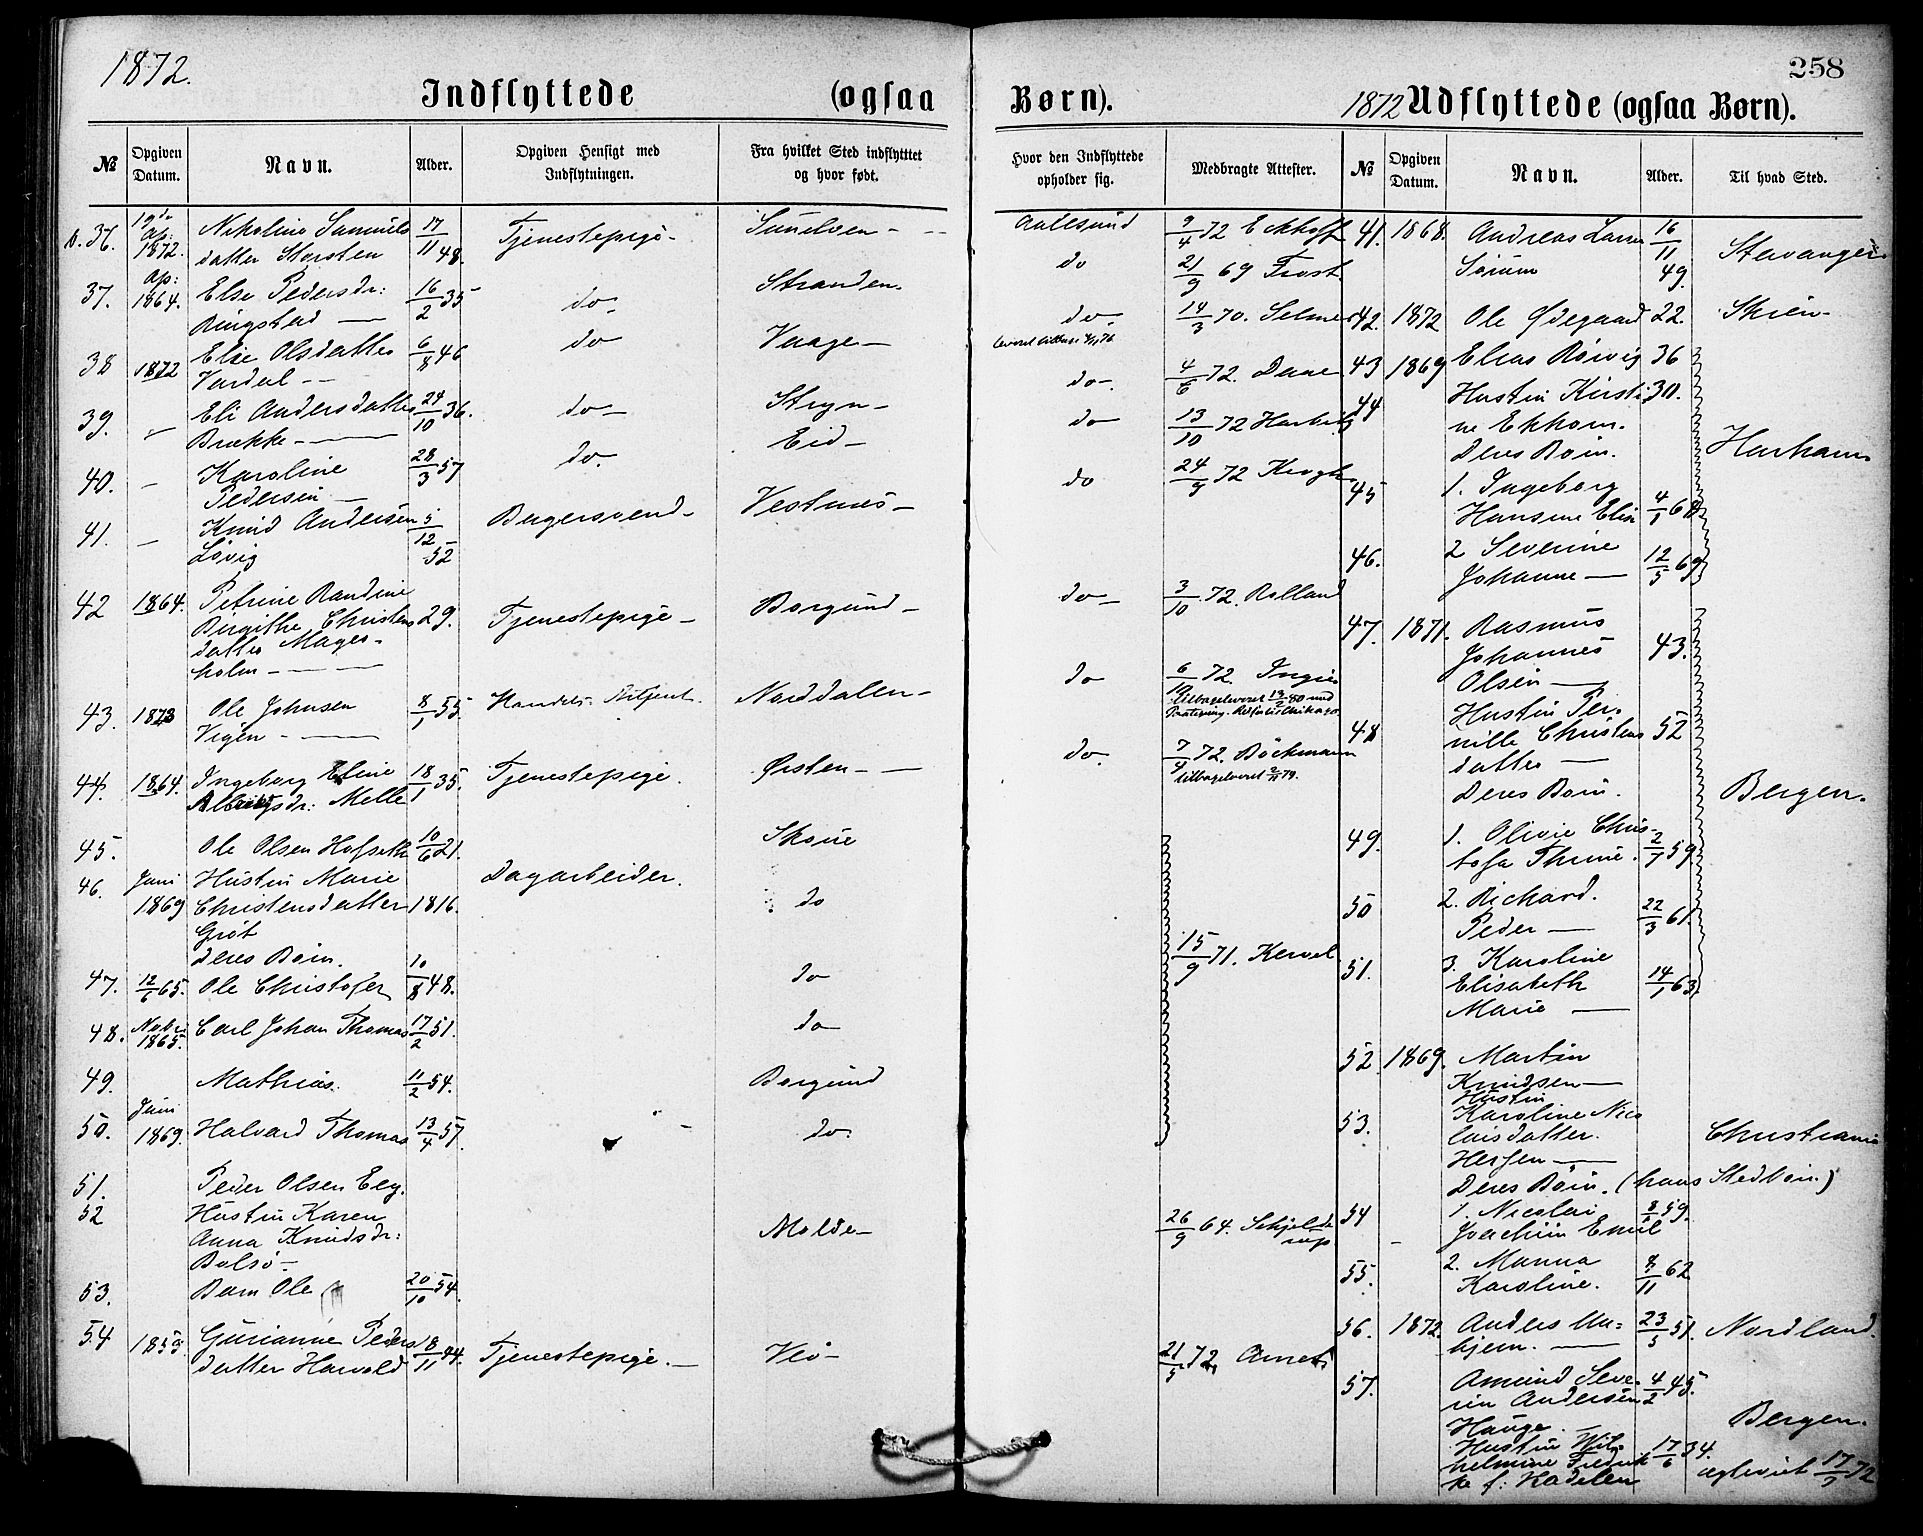 1872.
Indflyttede (ogsaa
№
Opgiven Datum.
Navn.
Alder.
Opgiven Hensigt med Indflytningen.
Fra hvilket Sted indflytttet og hvor født.
36. 1872. Nikoline Samuels 17/11 48. Tjenestepige - Sunelven -
datter Storsten
37. Ap: 1864. Else Pedersdr: 16/2 35 do. Stranden.
Ringstad
38 1872 Elie Olsdatter 6/8 46 do Vaage -
Vardal - -
39. - Eli Andersdatter 24/10 36. do - Stryn -
Brække -
40. - Karoline 28/3 57 do. Eid -
Pedersen -
41. - Knud Andersen 5/12 52 Bagersvend - Vestnes -
Løvig
42 1864. Petrine Randine
Birgithe Christens 29. Tjenestepige - Borgund -
datter Mages-
holm -
43. 1873 Ole Johnsen 8/1 55. Handels- Norddalen -
Vigen -
44. 1864. Ingeborg Eline 18/1 35. Tjenestepige. Ørsten -
Melle
45. Ole Olsen Hofseth 10/6 21. Skoue
46. Juni Hustru Marie Dagarbeider.
1869 Christensdatter 1816. do
Grøt
deres Børn.
47. 12/6 65. Ole Christofer 10/8 48. do
48. Novbr 1865. Carl Johan Thomas 17/2 51. do
49. Mathias. 11/2 54. Borgund
50. Juni 1869. Halvard Thomas 13/4 57. do.
51. Peder Olsen Eeg.
52 Hustru Karen
Anna Knudsdr: Molde -
Bolsø -
53. Barn Ole 20/10 54.
54 1859. Gurianne Peders 18/11 44. Tjenestepige. - Veø -
datter Harvold
258
Børn).
Hvor den Indflyttede opholder sig.
Medbragte Attester.
Aalesund 9/4 72 Eckhoff
do 21/9 69 Frost
do - 14/3 70. Selmer
do -. 4/6 72. Daae
do 13/10 72 Harbitz
do 24/9 72 Krogh
do - 3/10 72. Rolland
do 6/10 72.
tilbageleveret
do. 7/4 72. Böckmann
tilbageleveret
15/9 71.
26/9 64. Schjelde
rup
21/5 72
1872 Udflyttede (ogsaa Børn).
№
Opgiven Datum.
Navn.
Alder.
Til hvad Sted.
41. 1868. Andreas Larsen 16/11 49. Stavanger.
Sørum
42. 1872 Ole Ødegaard 22. Skien -
43 1869 Elias Rørvig 36
44 Hustru Kirsti- 30.
ne Ekhorn.
Deres Børn. Harham
45 1. Ingeborg
Hansine Elise 4/1 68
46. 2 Severine
Johanne - 12/5 69
47. 1871. Rasmus
Johannes 43.
Olsen -
48 Hustru Per-
nille Christens 52
datter -
Deres Børn. Bergen.
49. 1. Olivie Chris-
tofa Thrine. 2/7 59
50 2. Richard.
Peder - 22/3 61.
51. 3. Karoline
Elisabeth 14/1 63.
Marie -
52 1869. Martin
Knudsen -
53. Hustru
Karoline Nico
laisdatter. Christiania
Hersen -
Deres Børn. (hans Stedbørn.)
54 1. Nicolai 8/ 59.
Joachim Emil
55. 2. Manna
Karoline. 8/11 62
56. 1872. Anders Un= 23/5 51. Nordland.
hjem. -
57. Amund Seve- 4/2 45.
rin Andersen
Hauge. - Bergen.
Hustru Wil- 17/6 34.
helmine Fredrik
ke f: Kadelen 17/ 72